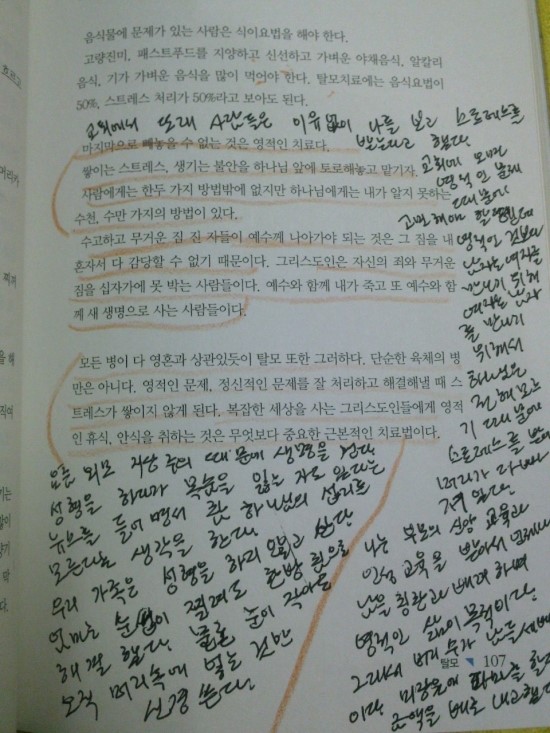 음식물에 문제가 있는 사람은 식이요법을 해야 한다.
고량진미, 패스트푸드를 지양하고 신선하고 가벼운 야채음식, 알칼리
음식, 기가 가벼운 음식을 많이 먹어야 한다. 탈모치료에는 음식요법이
50%, 스트레스 처리가 50%라고 보아도 된다.
교회에서 또래 사람들은 이유없이 나를 보고 스트레스를
받는다고 했다.
마지막으로 빼놓을 수 없는 것은 영적인 치료다.
쌓이는 스트레스, 생기는 불안을 하나님 앞에 토로해놓고 맡기자.
사람에게는 한두 가지 방법밖에 없지만 하나님에게는 내가 알지 못하는
수천, 수만 가지의 방법이 있다.
수고하고 무거운 짐 진 자들이 예수께 나아가야 되는 것은 그 짐을 내
혼자서 다 감당할 수 없기 때문이다. 그리스도인은 자신의 죄와 무거운
짐을 십자가에 못 박는 사람들이다. 예수와 함께 내가 죽고 또 예수와 함
께 새 생명으로 사는 사람들이다.
모든 병이 다 영혼과 상관있듯이 탈모 또한 그러하다. 단순한 육체의 병
만은 아니다. 영적인 문제, 정신적인 문제를 잘 처리하고 해결해낼 때 스
트레스가 쌓이지 않게 된다. 복잡한 세상을 사는 그리스도인들에게 영적
인 휴식, 안식을 취하는 것은 무엇보다 중요한 근본적인 치료법이다.
교회에 오면
영적인 문제
때문에
고민해야 할텐데
영적인 것보다
남자는 여자를
만나기 위해
여자는 남자
를 만나기
위해서
하나님은
전혀 모르
기 때문에
스트레스를 받
머리가 다 빠
져 있다.
요즘 외모 지상 주의 때문에 생명을 걸고
성형을 하다가 목숨을 잃는 자도 있다는
뉴스를 들어면서 참 하나님의 섭리를
모른다는 생각을 한다.
우리 가족은 성형을 하지 않고 산다
엄마는 순이 절려도 한방 침으로
해결 했다. 물론 눈이 작아도
오직 머리속에 넣는 것만
신경 쓴다.
나는 부모의 신앙 교육과
인성 교육을 받아서 언제나
남을 칭찬과 배려 하며
영적인 삶이 목적이다.
그래서 머리 수가 남들 세배
이다. 미장원에 파마를 할
금액을 배로 내고 했다
탈모 107